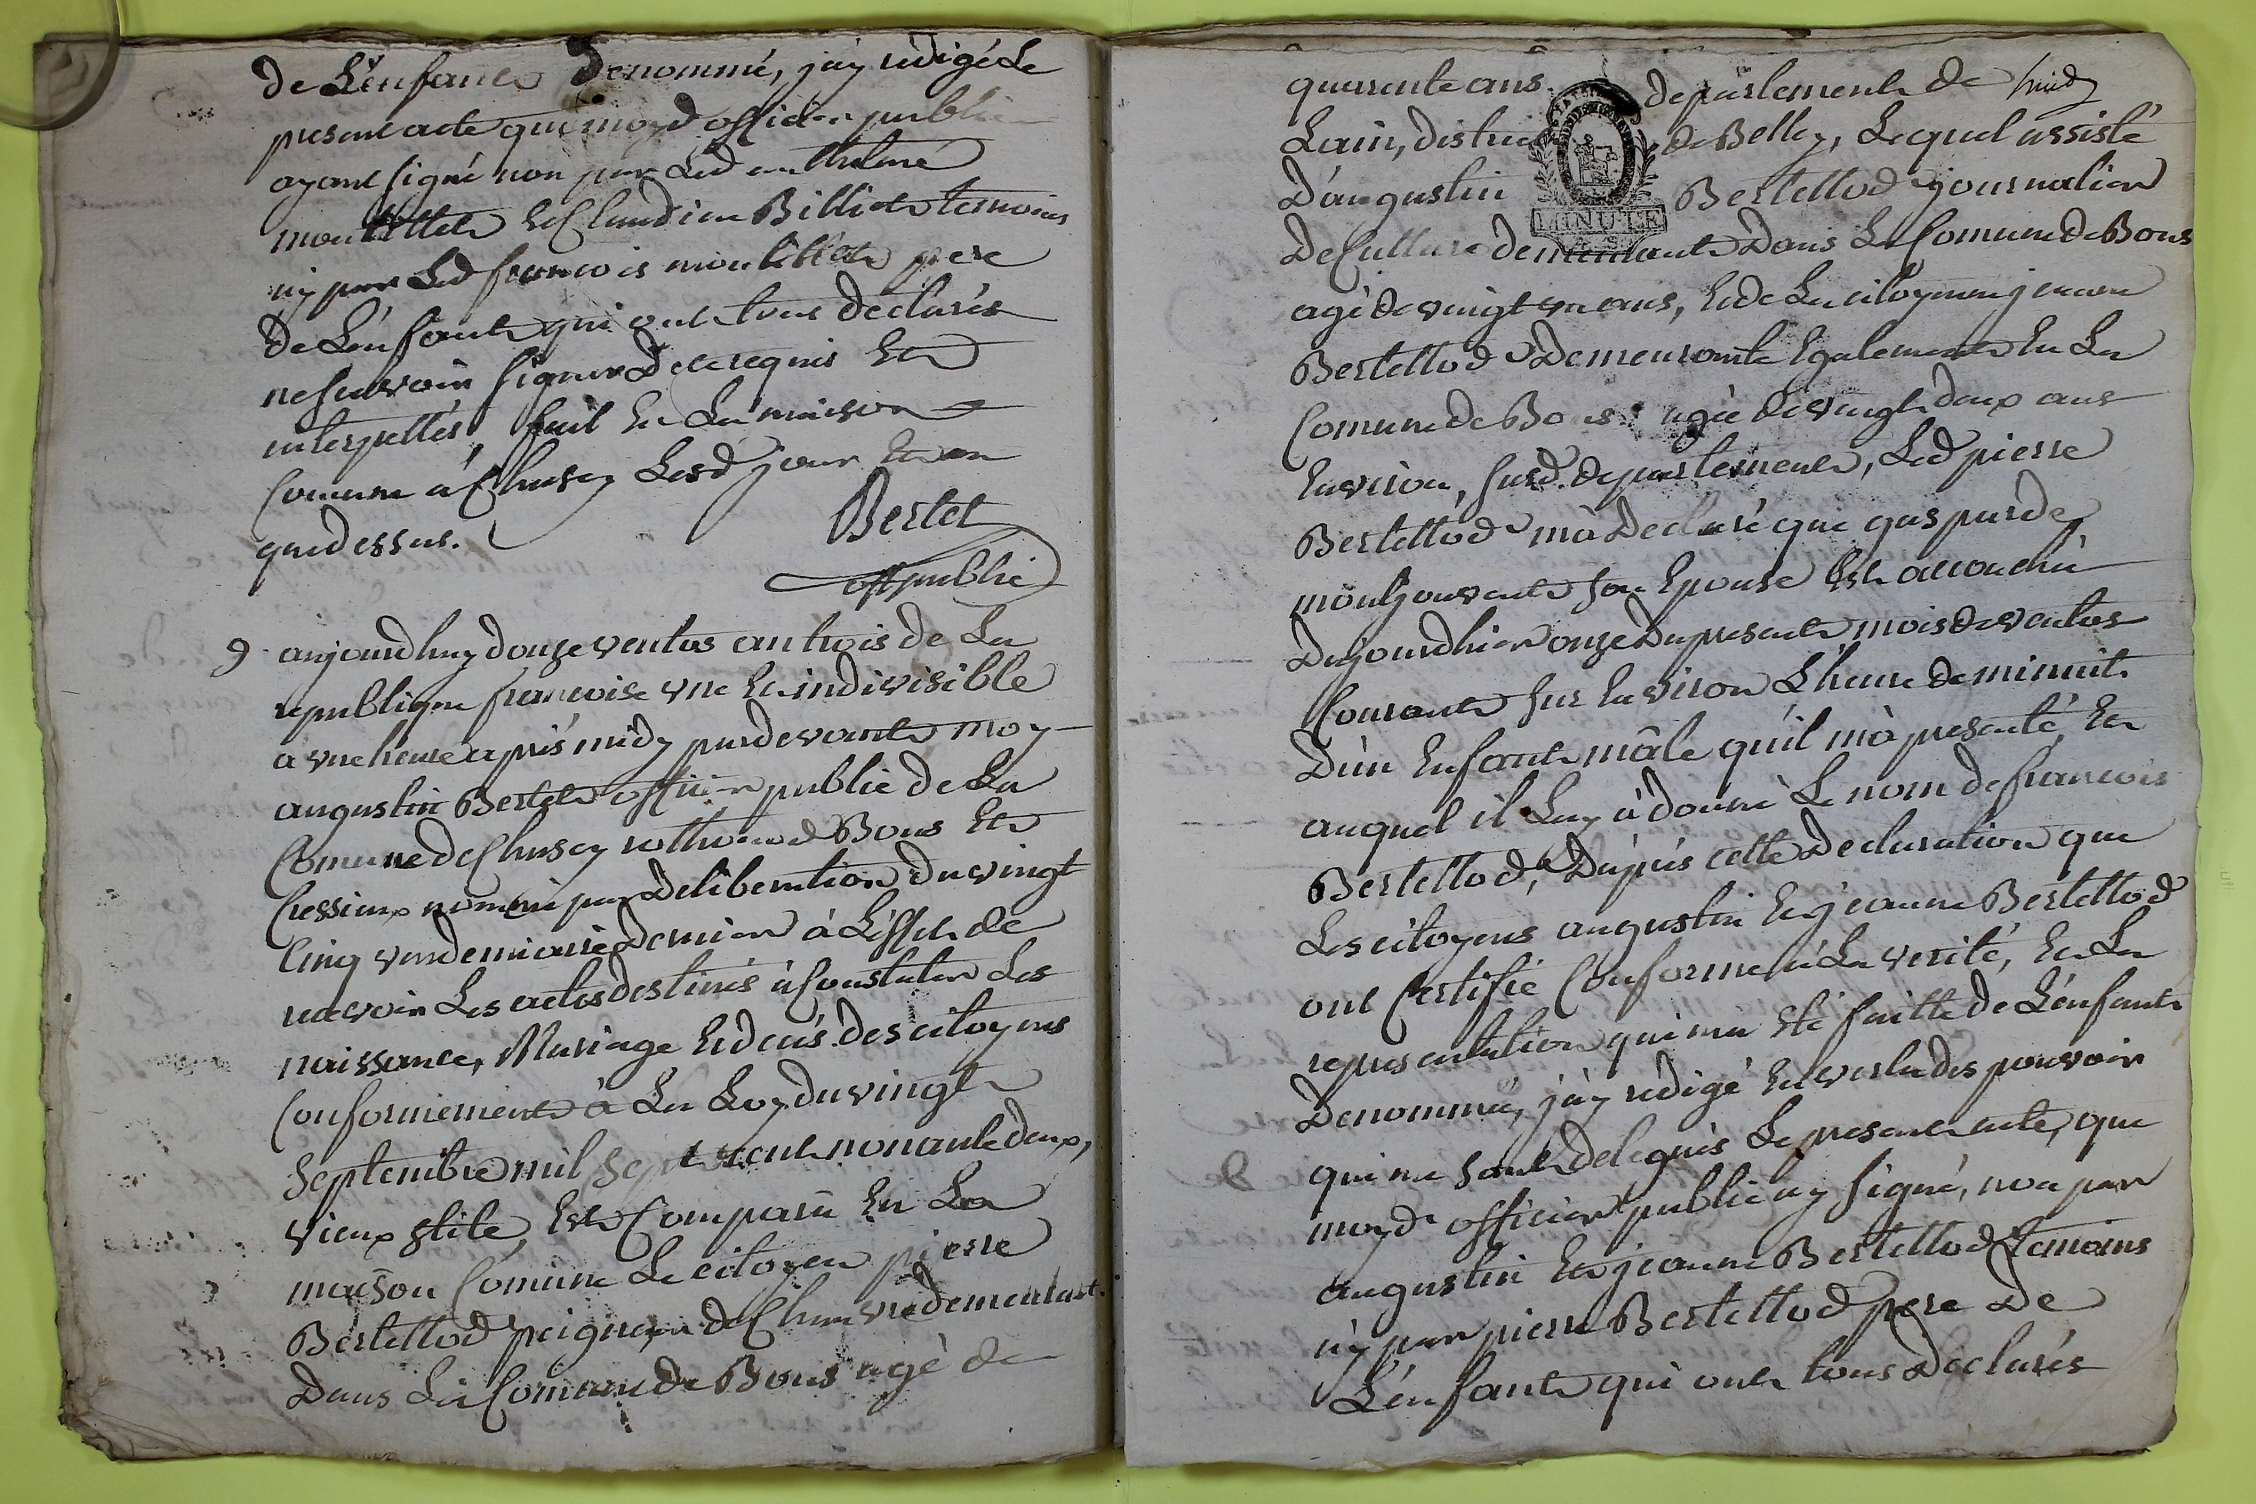 de Lénfant Denommé, jay rédigé Le
present acte que moyd officier public
ayant signé non par Led anthelme
montillet et Claudine Billiet temoins
ny par Led francois montillet pere
de Lénfant qui ont tous declarés
ne scavoir signer de ce requis Et
interpellés, fait En La maison
Comune à Chusey Lesd jour Et an
que dessus.
Bertet
off public
9 aujourdhuy douze ventos an trois de La
republique francoise vne Et indivisible
a vne heure après midy pardevant moy
augustin Bertet officier public de La
Comune de Chusey rothonod Bons Et
Cressieux nommé par Deliberation du vingt
Cinq vendemiaire dernier à Léffet de
recevoir Les actes destinés à Constater Les
naissance, Mariage Et decés des citoyens
Conformement à La Loy du vingt
Septembre mil Sept cent nonante deux,
vieux stile, Est Comparu En La
maison Comune Le citoyen pierre
Bertettod peigneur de Chanvre demeurant
Dans La Comune de Bons agé de
quarente ans departement de
Lain, district de Belley, Lequel assisté
D'augustin Bertettod journalier
De Culture demeurant Dans La Comune de Bons
agé de vingt un ans, Et de La citoyenne jeanne
Bertettod Demeurante Egalement En La
Comune de Bons agée de vingt deux ans
Environ, susd. departement, Led pierre
Bertettod mà Declaré que gasparde
montjouvent son Epouse Est accouchée
Dujourdhier onze Du present mois de ventos
Courant sur Environ L'heure de minuit
D'ún Enfant mâle qu'il m'à presenté, Et
auquel il Luy à donné Le nom de francois
Bertettod, Daprés cette Declaration que
Les citoyens augustin Et jeanne Bertettod
ont Certifié Conforme à La verité, Et La
representation qui ma été faitte de Lénfant
Denommé, j'ay rédigé En vertu des pouvoir
qui me sont delegués Le present acte, que
moyd officier public ay signé, non par
augustin Et jeanne Bertettod temoins
ny par pierre Bertettod pere de
Lénfant qui ont tous Declarés
MINUTE